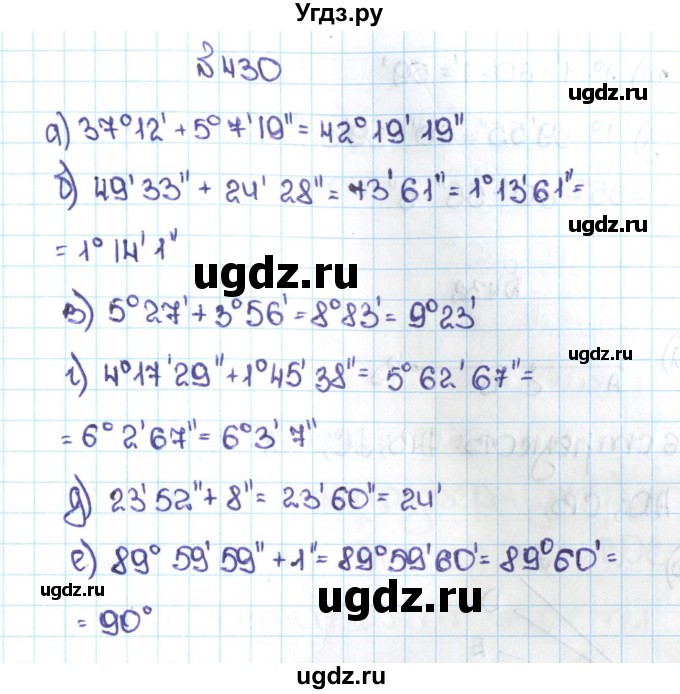 Угдз.ру
№430
а) 37°12' + 5°7'19" = 42°19'19"
б) 49'33" + 24'28" = 73'61" = 1°13'61" =
= 1°14'1"
ugdz.ru
ugdz.ru
в) 5°27' + 3°56' = 8°83' = 9°23'
ugdz.ru
г) 4°17'29" + 1°45'38" = 5°62'67" =
= 6°2'67" = 6°3'7"
д) 23'52" + 8" = 23'60" = 24'
е) 89°59'59" + 1" = 89°59'60' = 89°60' =
ugdz.ru
ugdz.ru
= 90°
ugdz.ru
ugdz.ru